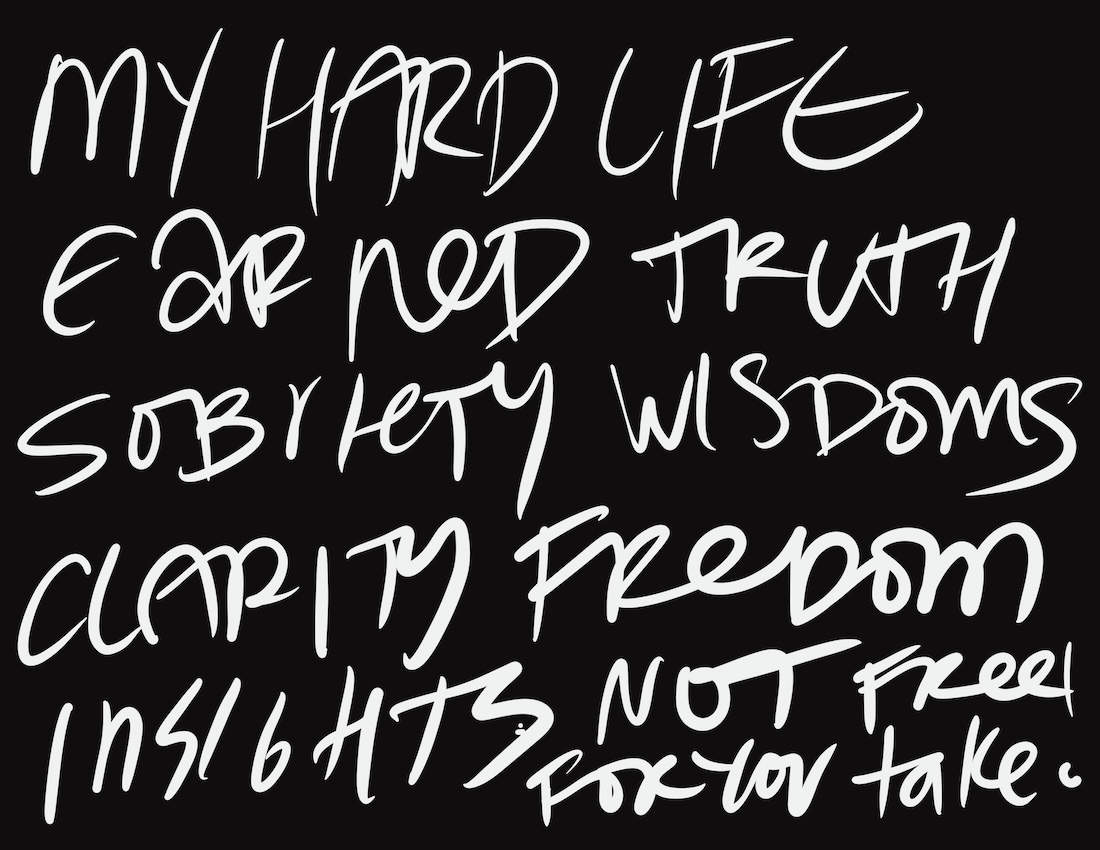 MY HARD LIFE
EARNED TRUTH
SOBRIETY WISDOMS
CLARITY FREDOM
INSIGHTS NOT FREE!
FOR YOU take.